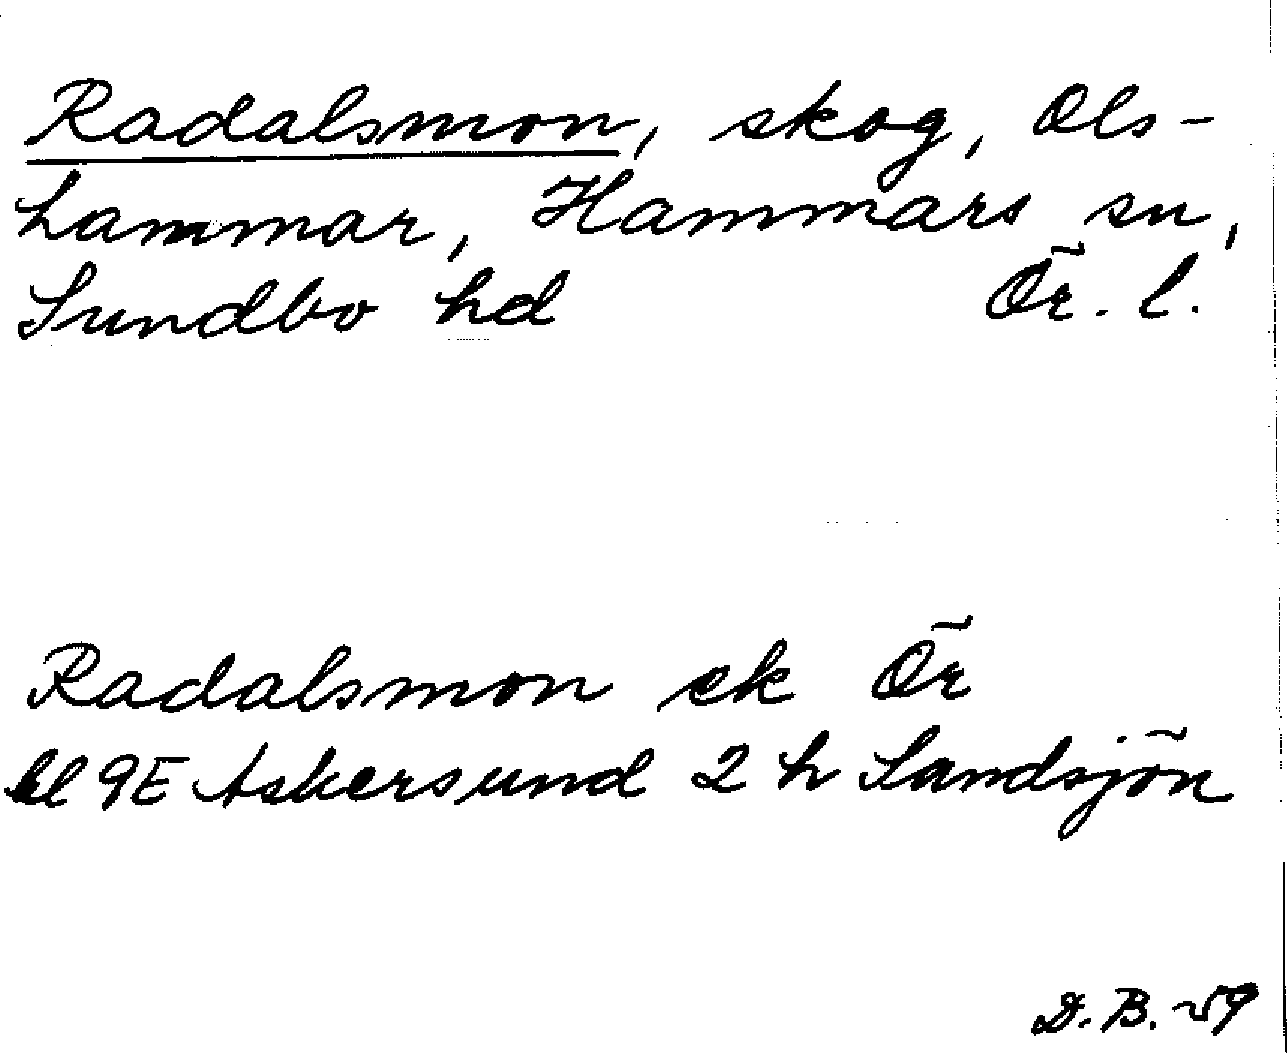 Radalsmon, skog, Ols-
hammar, Hammars sn,
Sundbo hd Ör. l.
Radalsmon ek Ör
bl 9E Askersund 2 h Sandsjön
D. B. -59